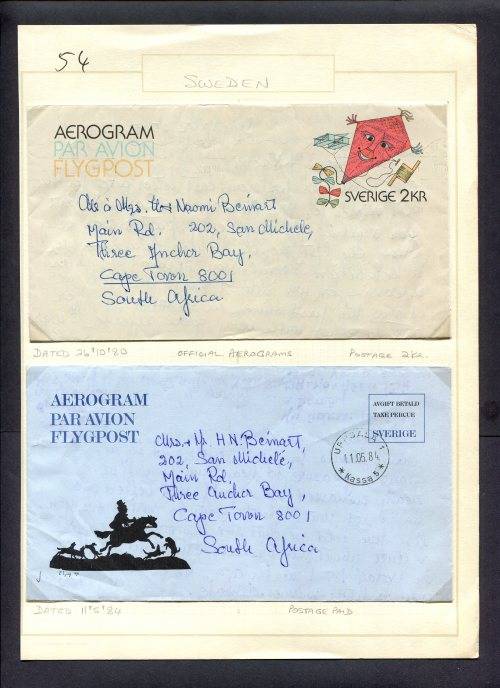 54
SWEDEN
AEROGRAM
PAR AVION
FLYGPOST
SVERIGE 2KR
Mr & Mrs. Naomi Beinart
Main Rd. 202, San Michele,
Three Anchor Bay,
Cape Town 8001
South Africa
DATED 26'10'80 OFFICIAL AEROGRAMS POSTAGE 2Kr.
AEROGRAM
PAR AVION
FLYGPOST
AVGIFT BETALD
TAXE PERCUE
SVERIGE
UPPSALA 1
11.05.84
* Kassa 5 *
Mrs. & Mr. H.N. Beinart,
202, San Michelé,
Main Rd.
Three Anchor Bay,
Cape Town 8001
South Africa
DATED 11'5'84 POSTAGE PAID